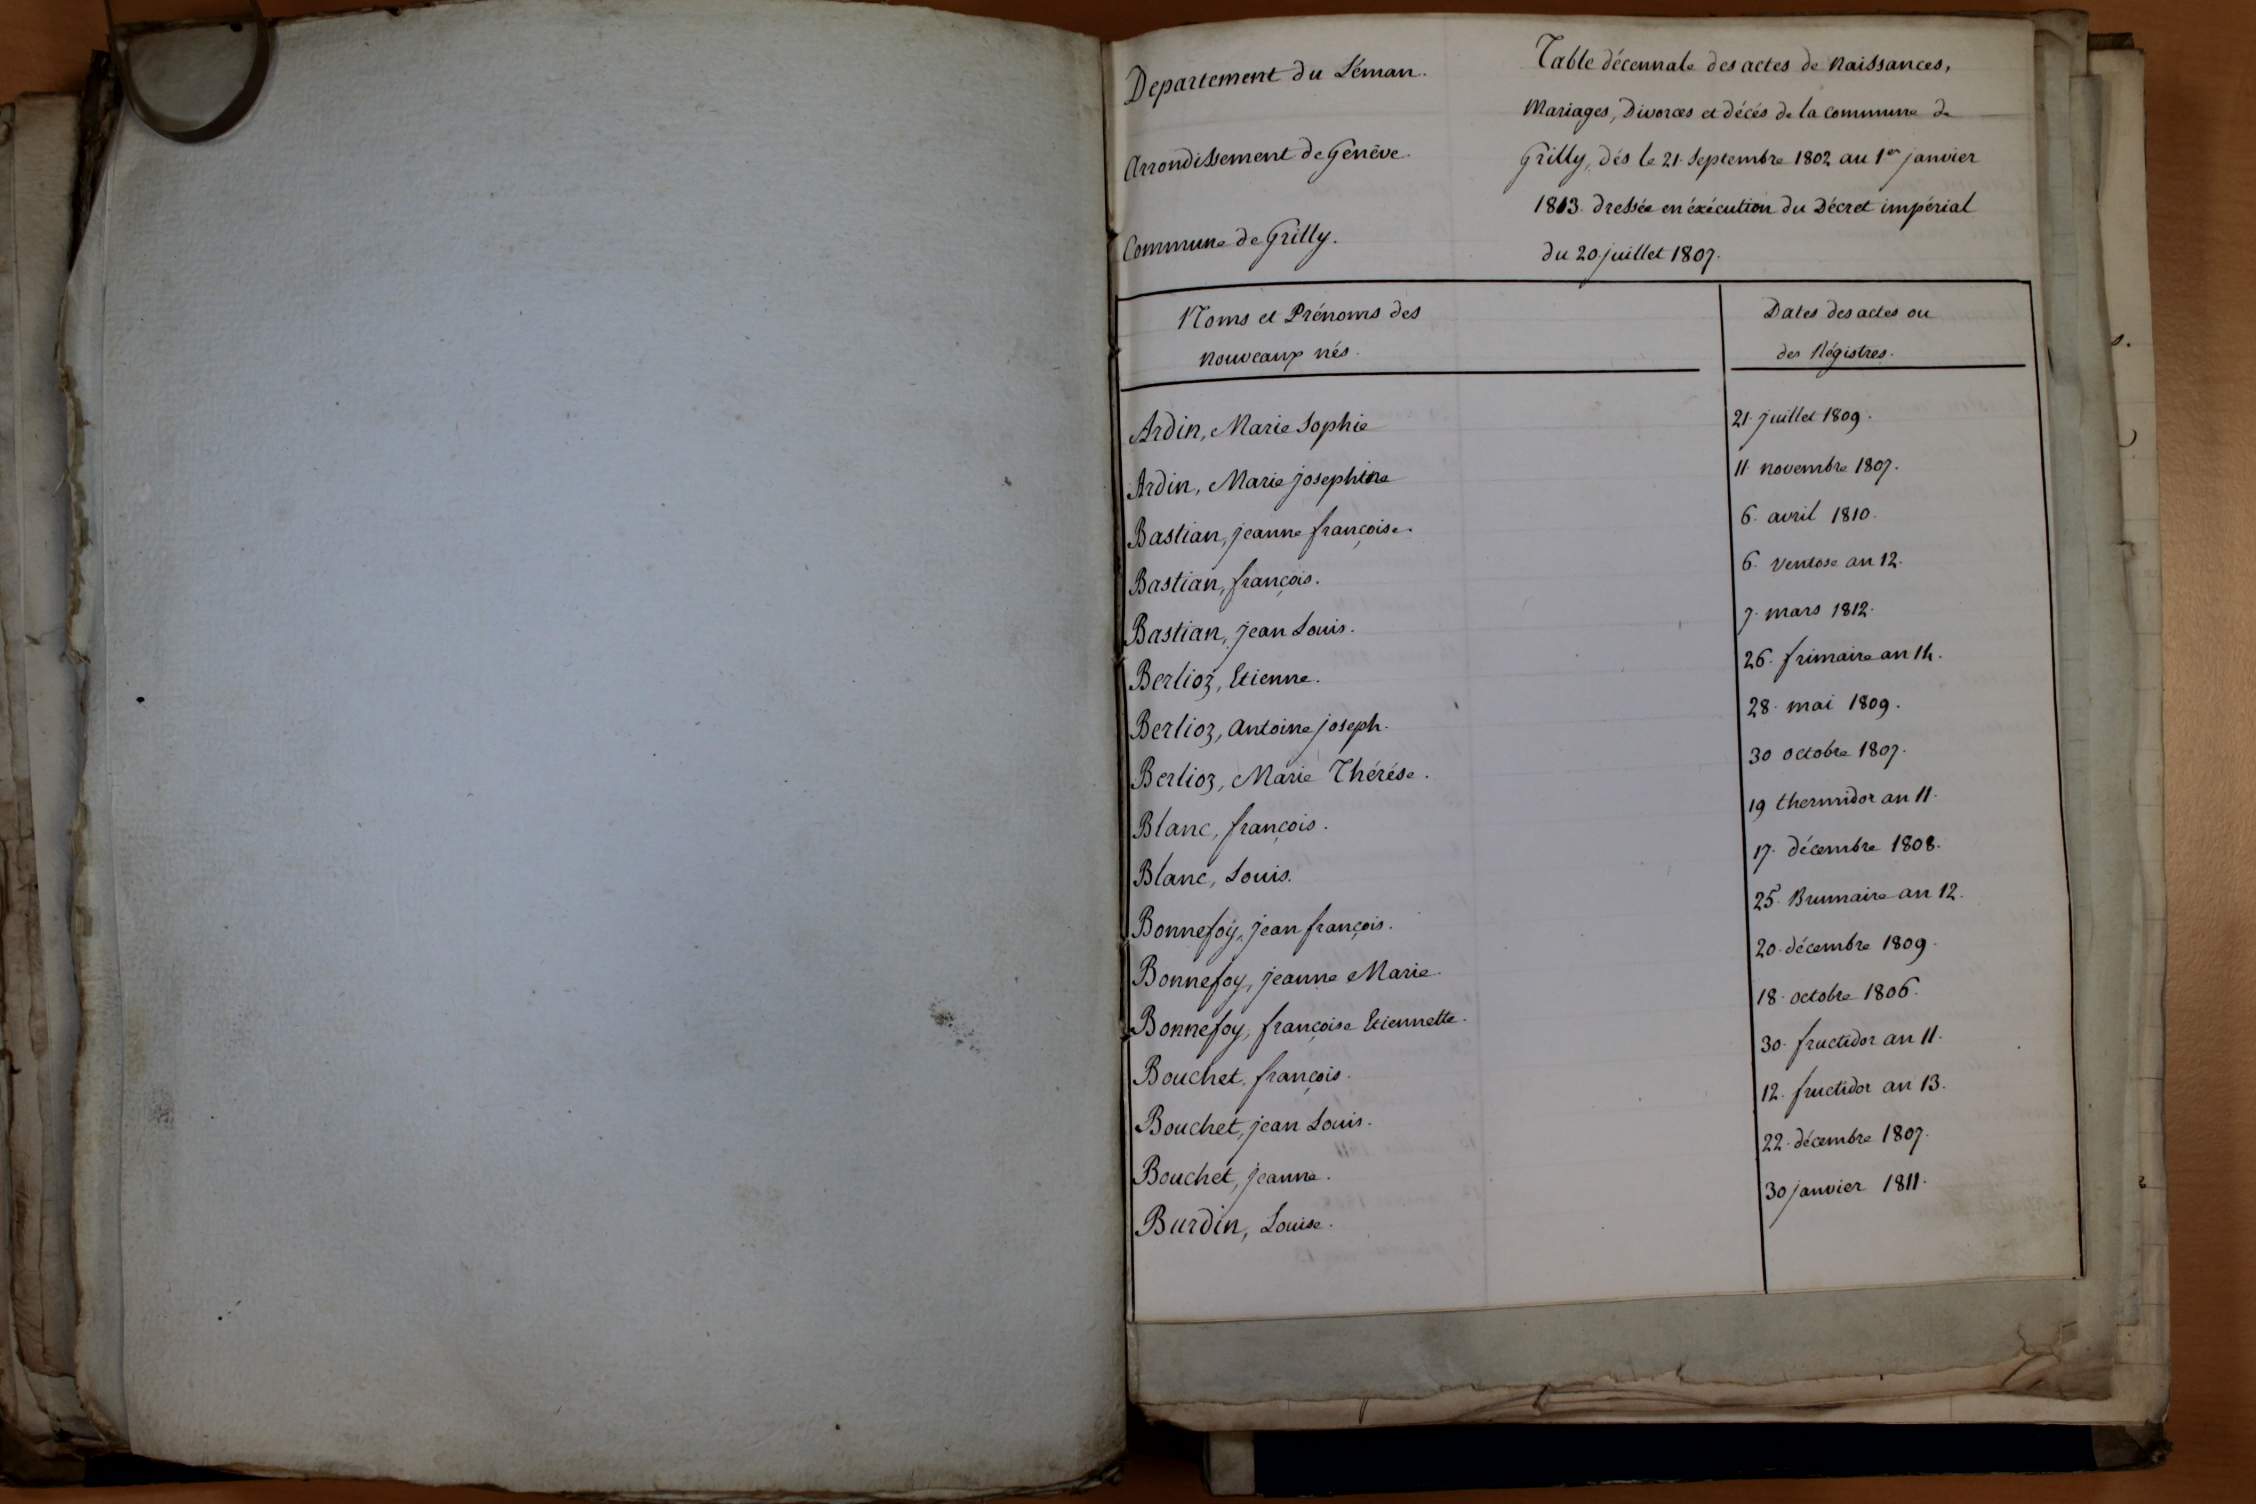 Departement du Léman.
Arrondissement de Genêve.
Commune de Grilly.
Table décennale des actes de Naissances,
Mariages, Divorces et décés de la commune de
Grilly, dés le 21. Septembre 1802 au 1er janvier
1813. dressée en éxécution du Décret impérial
du 20. juillet 1807.
Noms et Prénoms des
nouveaux nés.
Dates des actes ou
des Régistres.
Ardin, Marie Sophie 21. juillet 1809.
Ardin, Marie josephine 11. novembre 1807.
Bastian, jeanne françoise. 6. avril 1810.
Bastian, françois. 6. ventose an 12.
Bastian, jean Louis. 7. mars 1812.
Berlioz, Etienne. 26. frimaire an 14.
Berlioz, Antoine joseph. 28. mai 1809.
Berlioz, Marie Thérése. 30 octobre 1807.
Blanc, françois. 19 thermidor an 11.
Blanc, Louis. 17. décembre 1808.
Bonnefoy, jean françois. 25. Brumaire an 12.
Bonnefoy, jeanne Marie. 20. décembre 1809.
Bonnefoy, françoise Etiennette. 18. octobre 1806.
Bouchet, françois. 30. fructidor an 11.
Bouchet, jean Louis. 12. fructidor an 13.
Bouchet, jeanne. 22. décembre 1807.
Burdin, Louise. 30 janvier 1811.